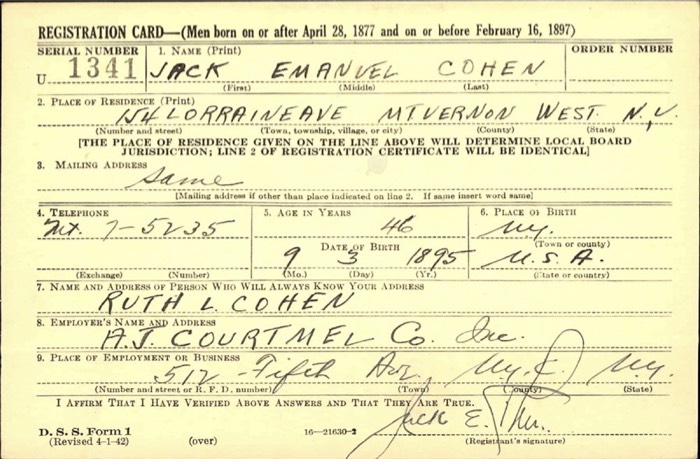 REGISTRATION CARD—(Men born on or after April 28, 1877 and on or before February 16, 1897)
SERIAL NUMBER 1. NAME (Print) ORDER NUMBER
U 1341 JACK EMANUEL COHEN
(First) (Middle) (Last)
2. PLACE OF RESIDENCE (Print)
154 LORRAINE AVE MT VERNON WEST. N.Y.
(Number and street) (Town, township, village, or city) (County) (State)
[THE PLACE OF RESIDENCE GIVEN ON THE LINE ABOVE WILL DETERMINE LOCAL BOARD
JURISDICTION; LINE 2 OF REGISTRATION CERTIFICATE WILL BE IDENTICAL]
3. MAILING ADDRESS
Same
[Mailing address if other than place indicated on line 2. If same insert word same]
4. TELEPHONE 5. AGE IN YEARS 6. PLACE OF BIRTH
Mt. 7-5235 46 N.Y.
DATE OF BIRTH (Town or county)
9 3 1895 U.S.A.
(Exchange) (Number) (Mo.) (Day) (Yr.) (State or country)
7. NAME AND ADDRESS OF PERSON WHO WILL ALWAYS KNOW YOUR ADDRESS
RUTH L. COHEN
8. EMPLOYER'S NAME AND ADDRESS
A.J. COURTMEL Co. Inc.
9. PLACE OF EMPLOYMENT OR BUSINESS
512 - Fifth Ave, N.Y.C. N.Y.
(Number and street or R. F. D. number) (Town) (County) (State)
I AFFIRM THAT I HAVE VERIFIED ABOVE ANSWERS AND THAT THEY ARE TRUE.
Jack E.
D. S. S. Form 1
(Revised 4-1-42) (over) 16—21630-2 (Registrant's signature)